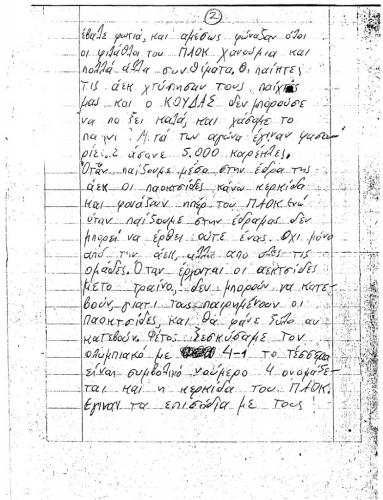 2
έβαλε φωτιά, και αμέσως φώναξαν όλοι
οι φίλαθλοι του ΠΑΟΚ χανούμια και
πολλά άλλα συνθήματα. Οι παίκτες
τις άεκ χτύπησαν τους παίχτες
μας και ο ΚΟΥΔΑΣ δεν μπορούσε
να παίξει καλά, και χάσαμε το
παιχνι Μετά των αγώνα έγιναν φασα
ρίες. σπάσανε 5.000 καρέκλες.
Όταν παίζουμε μέσα στην έδρα της
άεκ οι παοκτσίδες κάνω κερκίδα
και φωνάζουν ηπέρ του ΠΑΟΚ. Ενώ
όταν παίζουμε στην έδραμας δεν
μπορεί να έρθει ούτε ένας. Όχι μόνο
από την άεκ, αλλά απο όλες τις
ομάδες. Όταν έρχονται οι αεκτσίδες
μετο τραίνο, δεν μπορούν να κατε-
βούν, γιατι τους παιρημένουν οι
Παοκτσίδες, και θα φάνε ξύλο αν
κατεβούν. Φέτος ξεσκίσαμε τον
ολυμπιακό με 4-1 το τέσσερα
είναι συμβολικό νούμερο 4 ονομάζε-
ται και η κερκίδα του ΠΑΟΚ.
Έγιναν τα επισόδια με τους